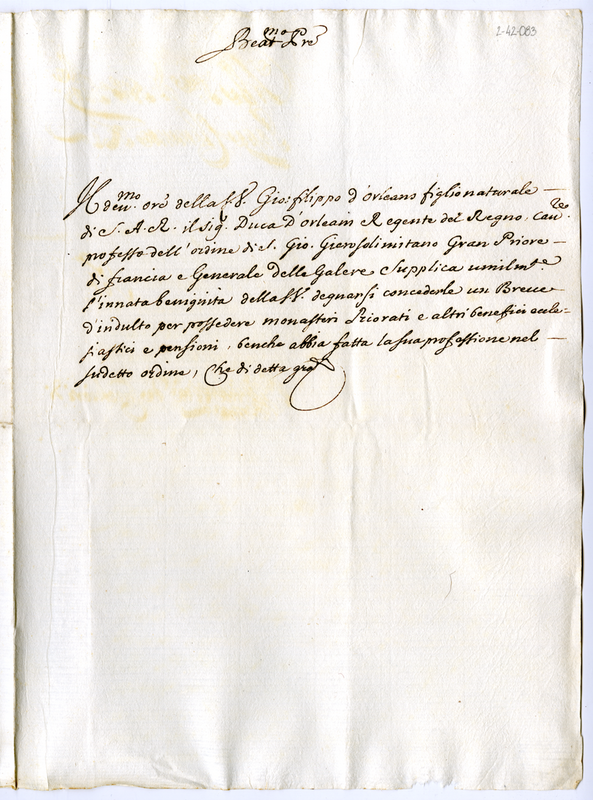 2-42-083
Beat.mo Pre
Il dev.mo ore della S.V. Gio: filippo d'orleans figlio naturale
di S. A. R. il sig. Duca D'orleain Regente del Regno, Cau.re
professo dell'ordine di S. Gio. Gierosolimitano Gran Priore
di francia e Generale delle Galere Supplica umilmte
l'innata benignita della S.V. degnarsi concederle un Breve
d'indulto per possedere monasteri Priorati e altri benefici eccle=
siastici e pensioni, benche abbia fatta la sua professione nel
sudetto ordine, Che di detta gra